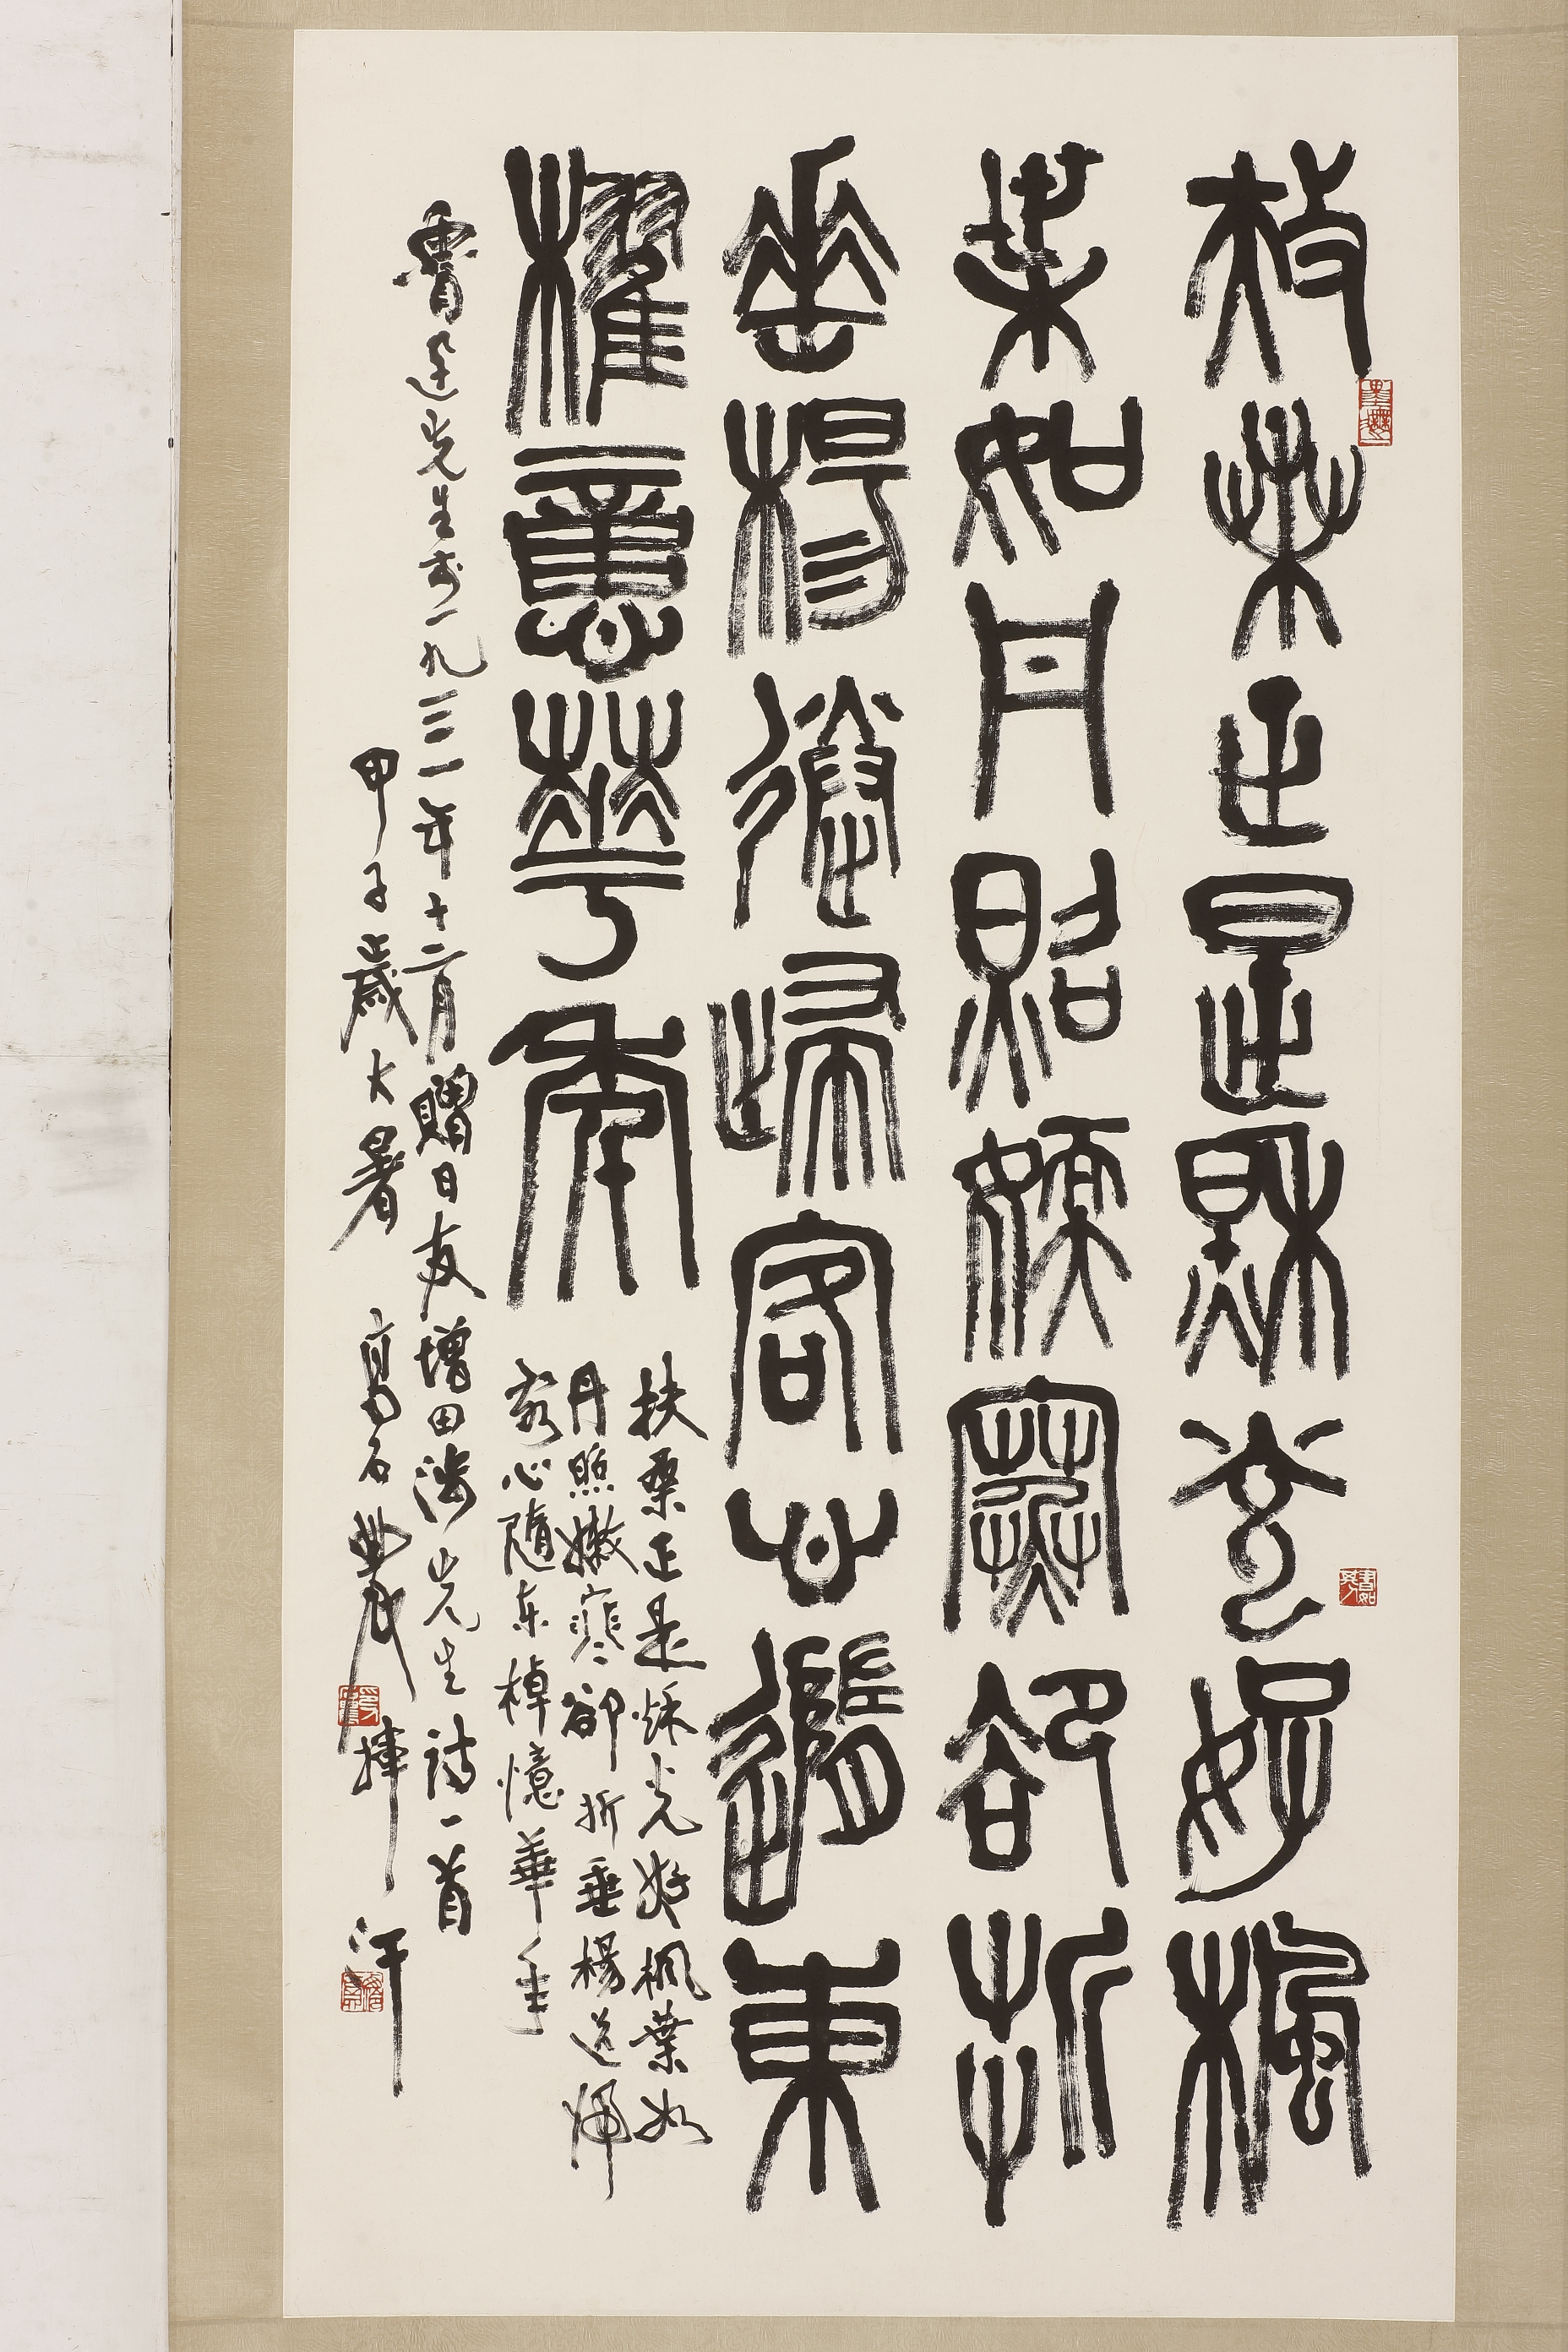 扶桑正是秋光好楓
葉如丹照嫩寒卻折
垂楊送歸客心隨東
櫂憶華年
扶桑正是秋光好楓葉如
丹照嫩寒卻折垂楊送歸
客心隨東棹憶華年
魯迅先生於一九三一年十二月贈日友增田涉先生詩一首
甲子歲大暑 高石農揮汗